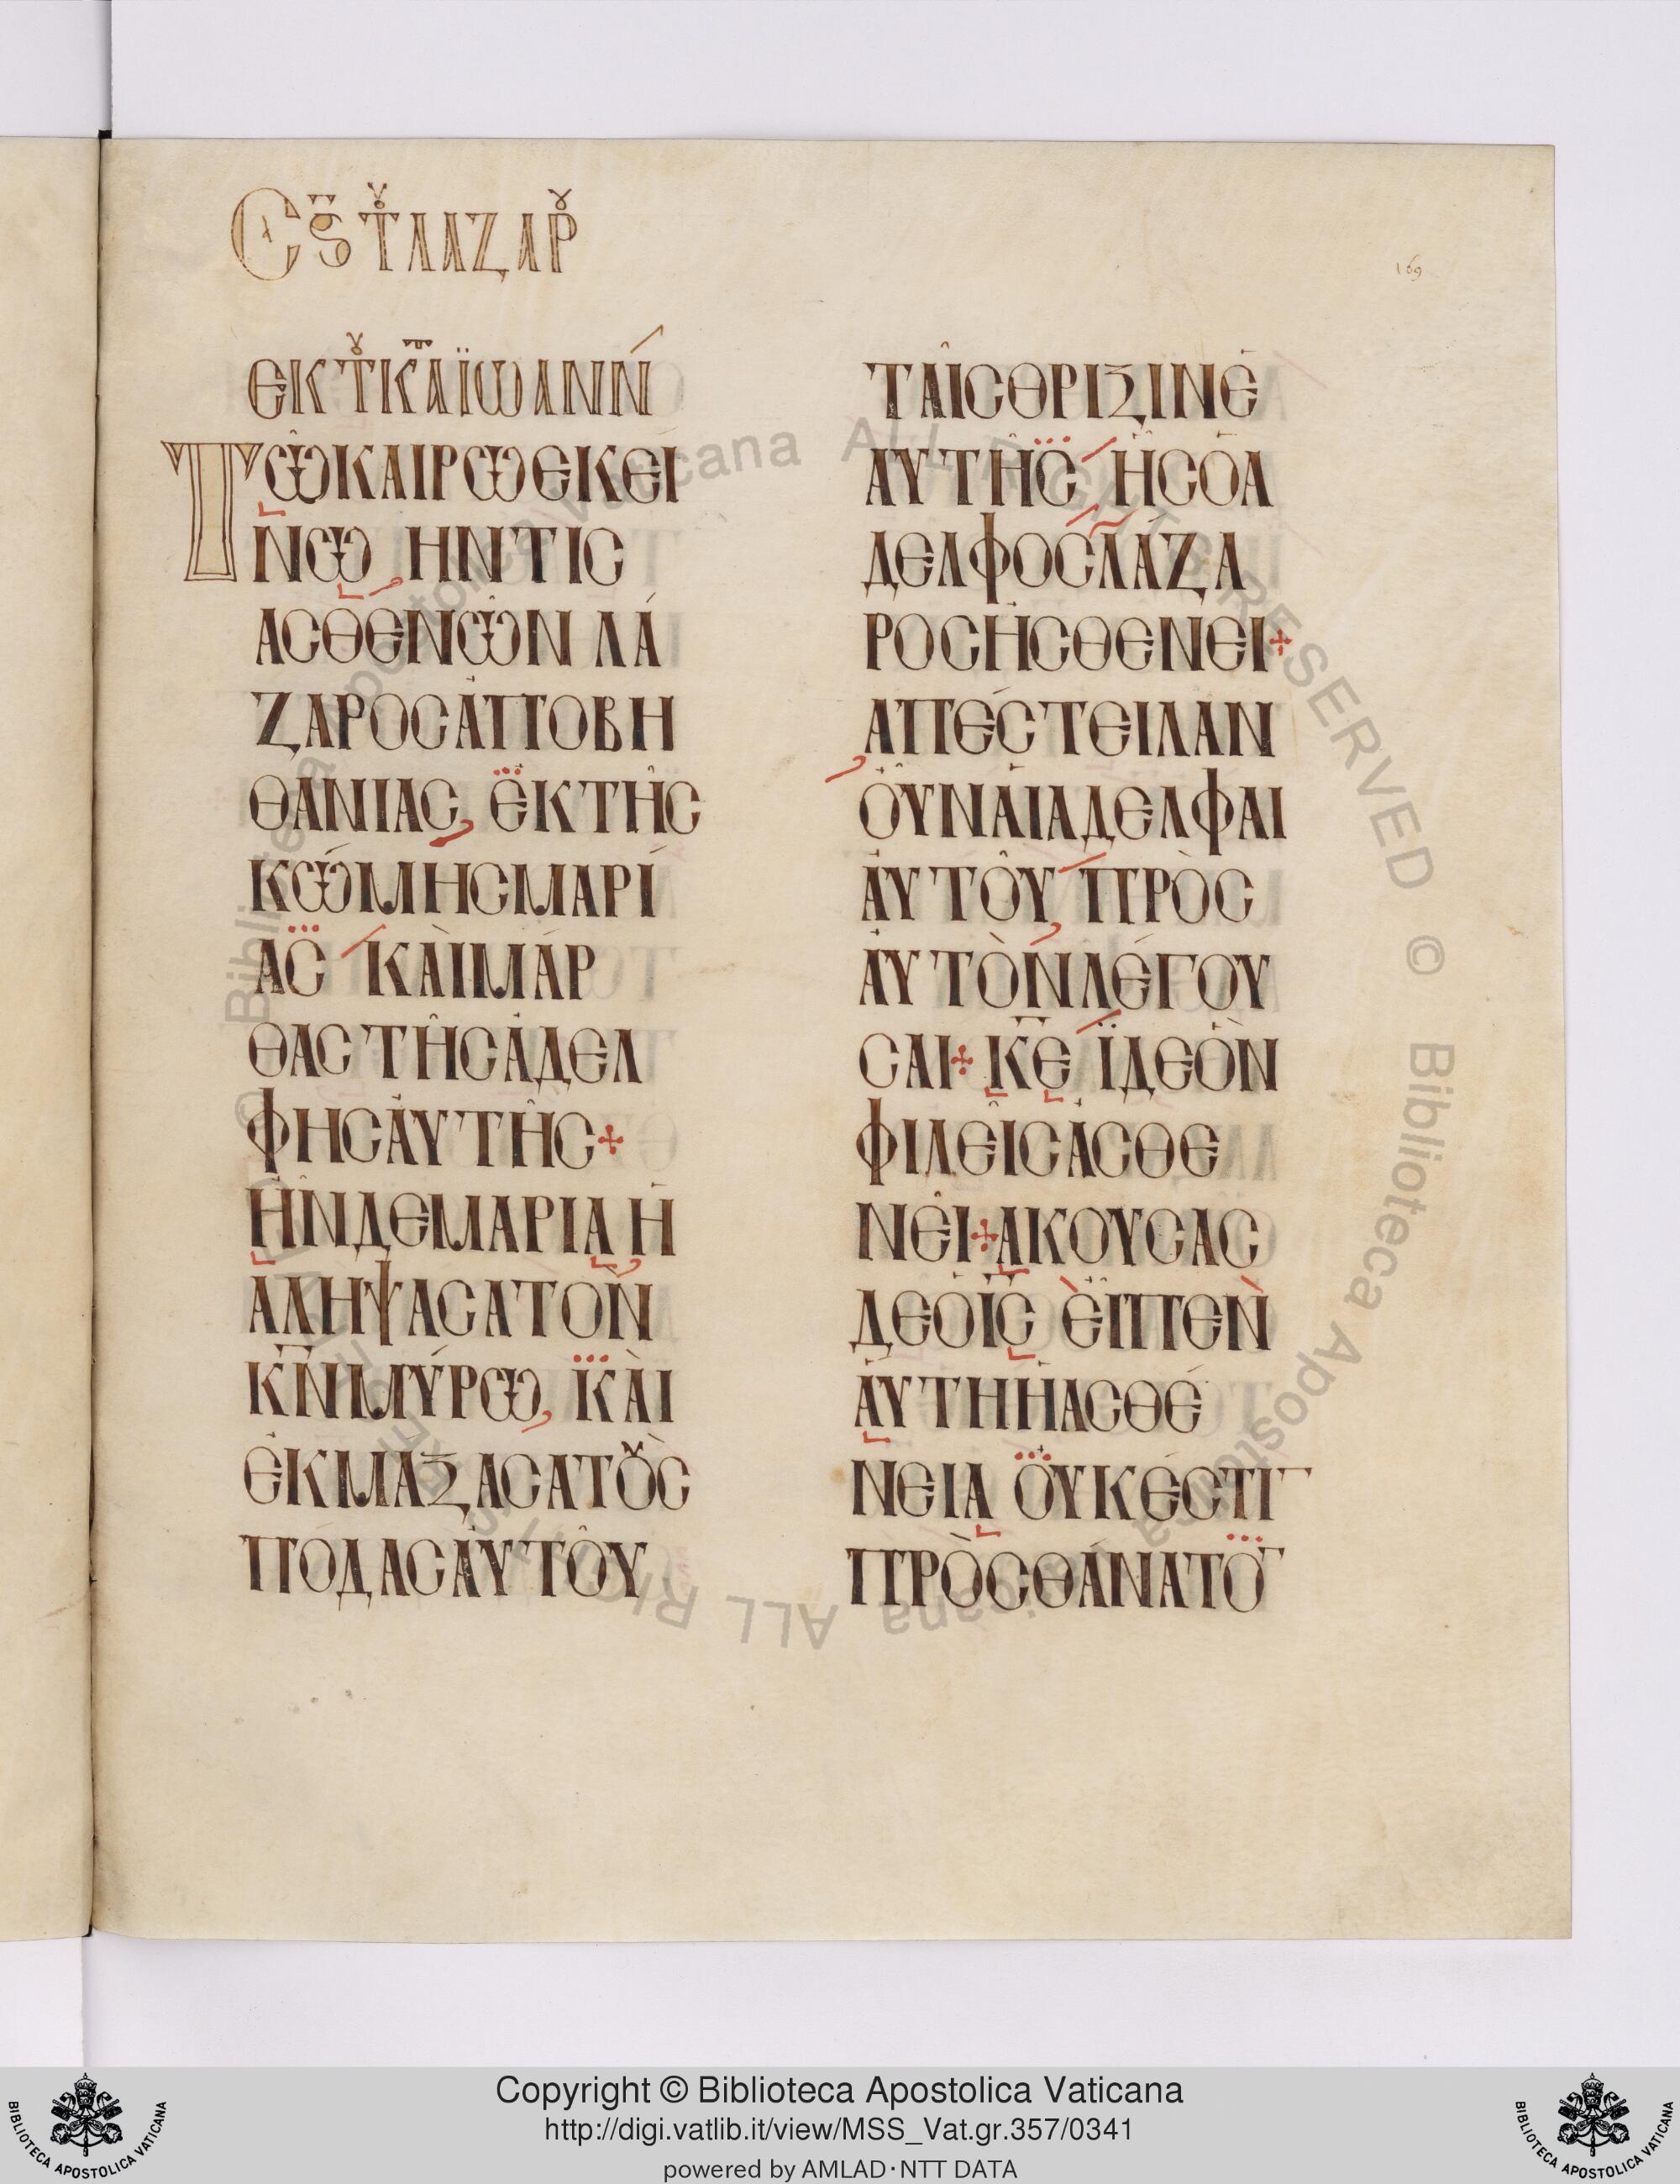 Сς̄ ΤΟΥ ΛΑΖΑΡΟΥ
169
ΕΚ ΤΟΥ ΚΑΤΑ ΪΩΑΝΝ
ΤΩ ΚΑΙΡΩ ΕΚΕΙ
ΝΩ ΗΝ ΤΙΣ
ΑϹΘΕΝΩΝ ΛΑ
ΖΑΡΟϹ ΑΠΟ ΒΗ
ΘΑΝΙΑϹ, ΕΚ ΤΗϹ
ΚΩΜΗϹ ΜΑΡΙ
ΑϹ ΚΑΙ ΜΑΡ
ΘΑϹ ΤΗϹ ΑΔΕΛ
ΦΗϹ ΑΥΤΗϹ+
ΗΝ ΔΕ ΜΑΡΙΑ Η
ΑΛΗΨΑϹΑ ΤΟΝ
Κ̅Ν̅ ΜΥΡΩ, ΚΑΙ
ΕΚΜΑΞΑϹΑ ΤΟΥϹ
ΠΟΔΑϹ ΑΥΤΟΥ
ΤΑΙϹ ΘΡΙΞΙΝ Ε
ΑΥΤΗϹ ΗϹ Ο Α
ΔΕΛΦΟϹ ΛΑΖΑ
ΡΟϹ ΗϹΘΕΝΕΙ+
ΑΠΕϹΤΕΙΛΑΝ
ΟΥΝ ΑΙ ΑΔΕΛΦΑΙ
ΑΥΤΟΥ ΠΡΟϹ
ΑΥΤΟΝ ΛΕΓΟΥ
ϹΑΙ+ Κ̅Ε̅ ΪΔΕ ΟΝ
ΦΙΛΕΙϹ ΑϹΘΕ
ΝΕΙ+ ΑΚΟΥϹΑϹ
ΔΕ Ο Ι̅Ϲ̅ ΕΙΠΕΝ
ΑΥΤΗ Η ΑϹΘΕ
ΝΕΙΑ ΟΥΚ ΕϹΤΙ¯
ΠΡΟϹ ΘΑΝΑΤΟ¯
Copyright © Biblioteca Apostolica Vaticana
http://digi.vatlib.it/view/MSS_Vat.gr.357/0341
powered by AMLAD·NTT DATA
BIBLIOTECA APOSTOLICA VATICANA
BIBLIOTECA APOSTOLICA VATICANA